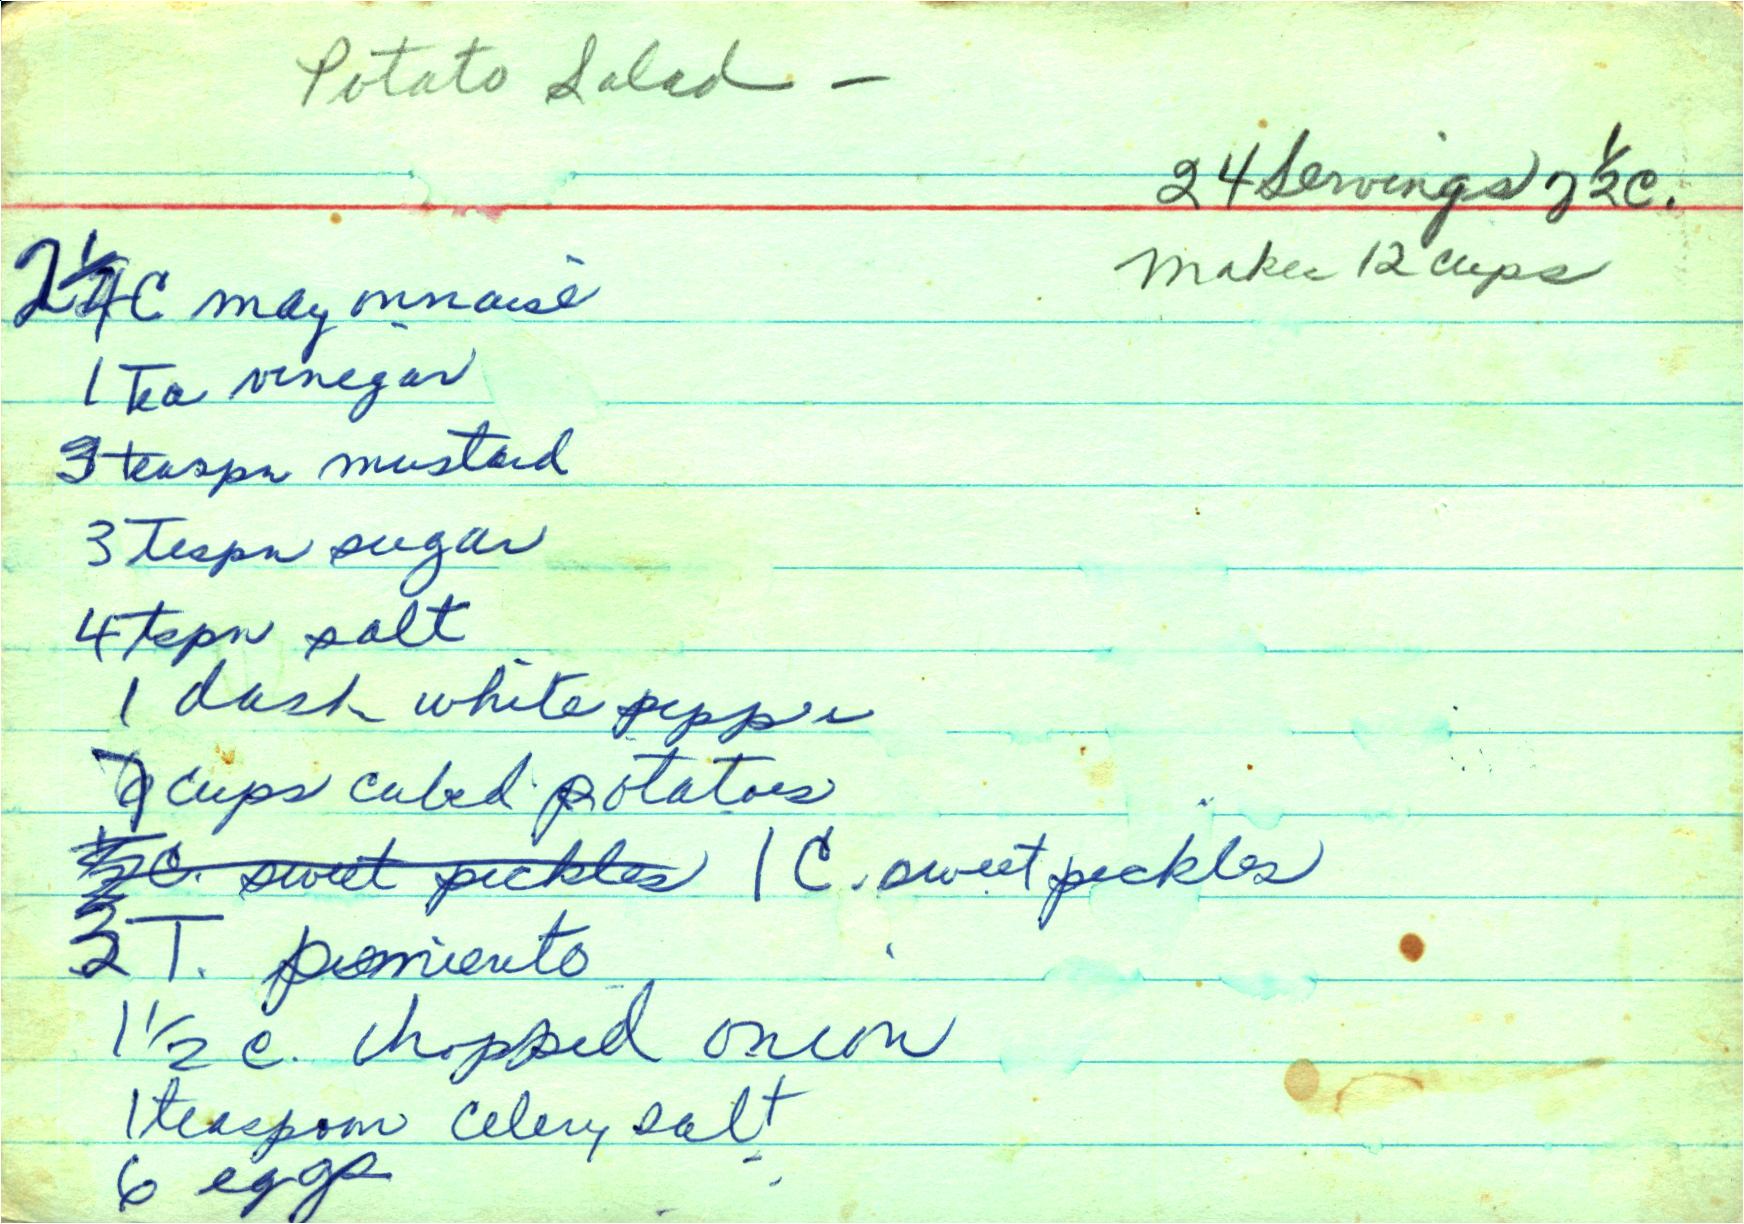 Potato Salad —
24 Servings of 1/2 C.
Makes 12 cups
2 1/4 C mayonnaise
1 Tea vinegar
3 teaspn mustard
3 Tespn sugar
4 tspn salt
1 dash white pepper
7 cups cubed potatoes
1/2 C. sweet pickles 1 C. sweet pickles
2 T. pimiento
1 1/2 c. chopped onion
1 teaspoon celery salt
6 eggs